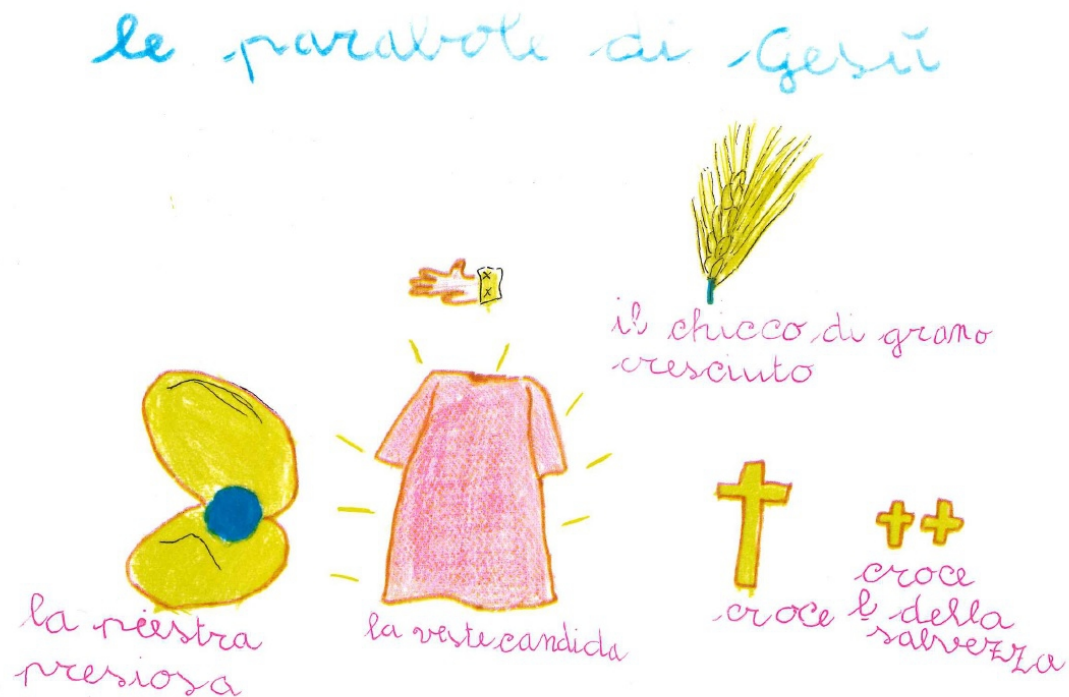 le parabole di Gesù
il chicco di grano
cresciuto
la piestra
presiosa
la veste candida
croce
croce
e della
salvezza